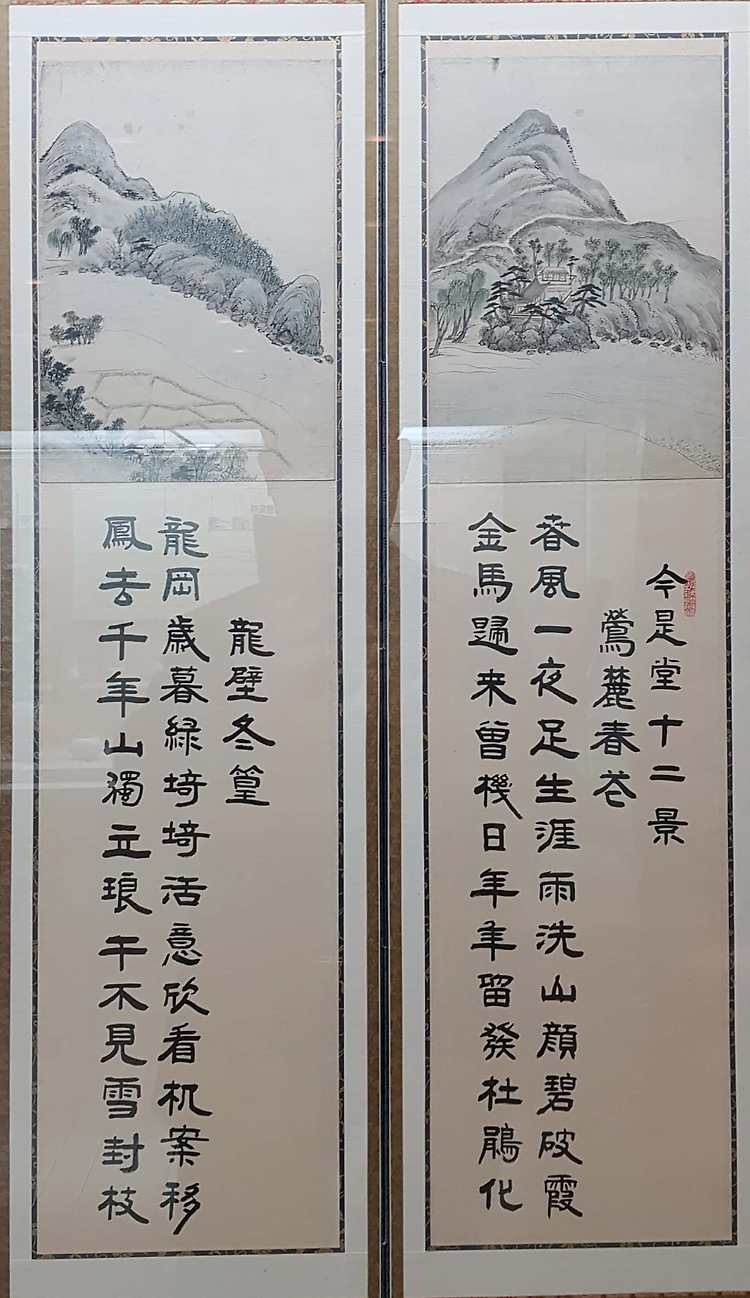 今是堂十二景
鶯麓春花
春風一夜足生涯雨洗山顔碧破霞
金馬歸来曾機日年年留發杜鵑化
龍壁冬篁
龍岡歲暮緑埼埼活意欣看机案移
鳳去千年山獨立琅干不見雪封枝